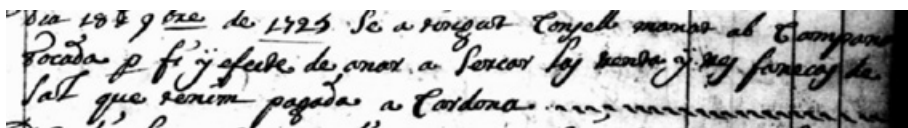 Dia 18 de 9bre de 1725 Se a tingut Consell manat ab Campana
tocada p fi ÿ efecte de anar a sercar las trenta ÿ tres fanecas de
Sal que tenim pagada a Cardona